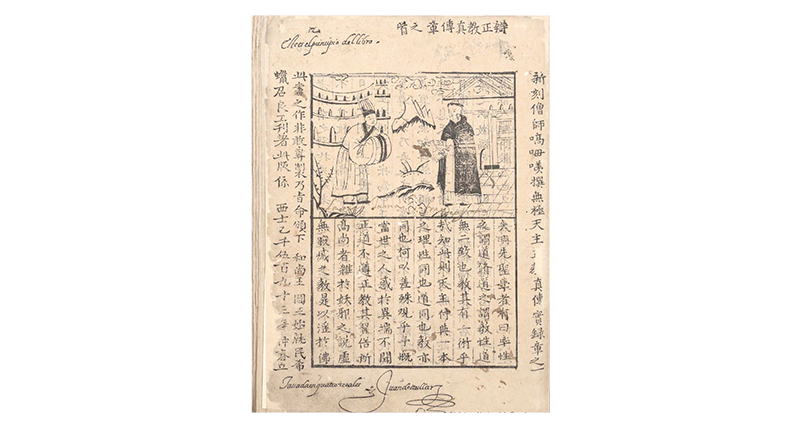 辯正教真傳章之首
este es el principio del libro.
新刻僧師嗃呣𠿕撰無極天主正教真傳實錄章之一
大明先聖學者有曰率性
之謂道脩道之謂教性道
無二致也教其有二術乎
哉知此則天主付與一本
之理性同也道同也教亦
同也何以差殊觀乎乎慨
當世之人惑於異端不聞
正道不遵正教其習俗所
高尚者雜於妖邪之說虛
無寂滅之教是以淫於佛
此書之作非敢專制乃旨命頒下和尚王國王始就民希
蠟召良工刊著此版係西士乙千伍百九十三年仲春立
Tassada in quatro reales
Juan de cuellar